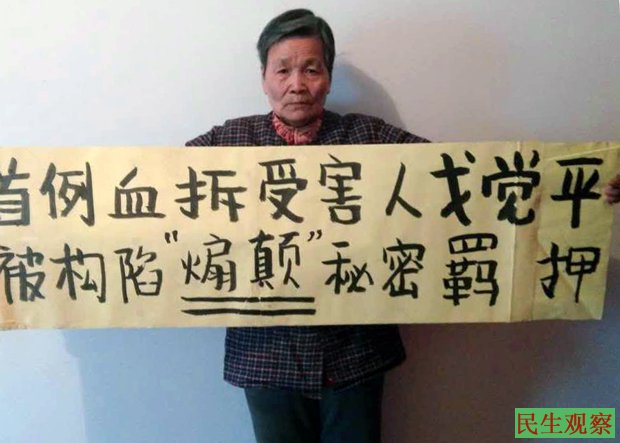 首例血拆受害人戈觉平
被构陷"煽颠"秘密羁押
民生观察